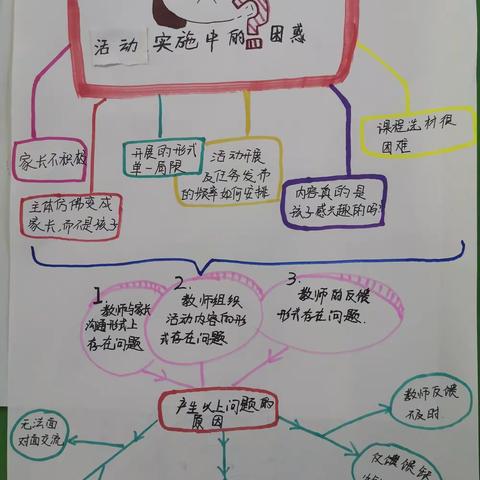 活动实施中的?困惑
家长不积极
主体仿佛变成
家长,而不是孩子
开展的形式
单一局限
活动开展
及任务发布
的频率如何安排
内容真的是
孩子感兴趣的吗?
课程选材很
困难
1.
教师与家长
沟通形式上
存在问题
2.
教师组织
活动内容的形
式存在问题
3.
教师的反馈
形式存在问题.
产生以上问题的
原因
无法面
对面交流
教师反馈
不及时.
反馈很缺